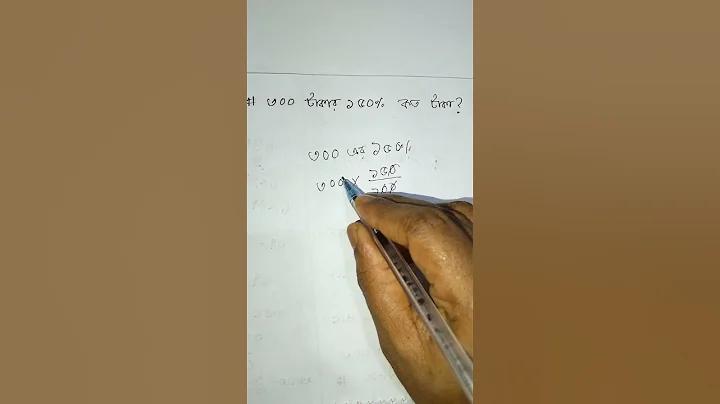 # ৩০০ টাকার ১৫০% কত টাকা?
৩০০ এর ১৫০%
৩০০ × ১৫০
১০০